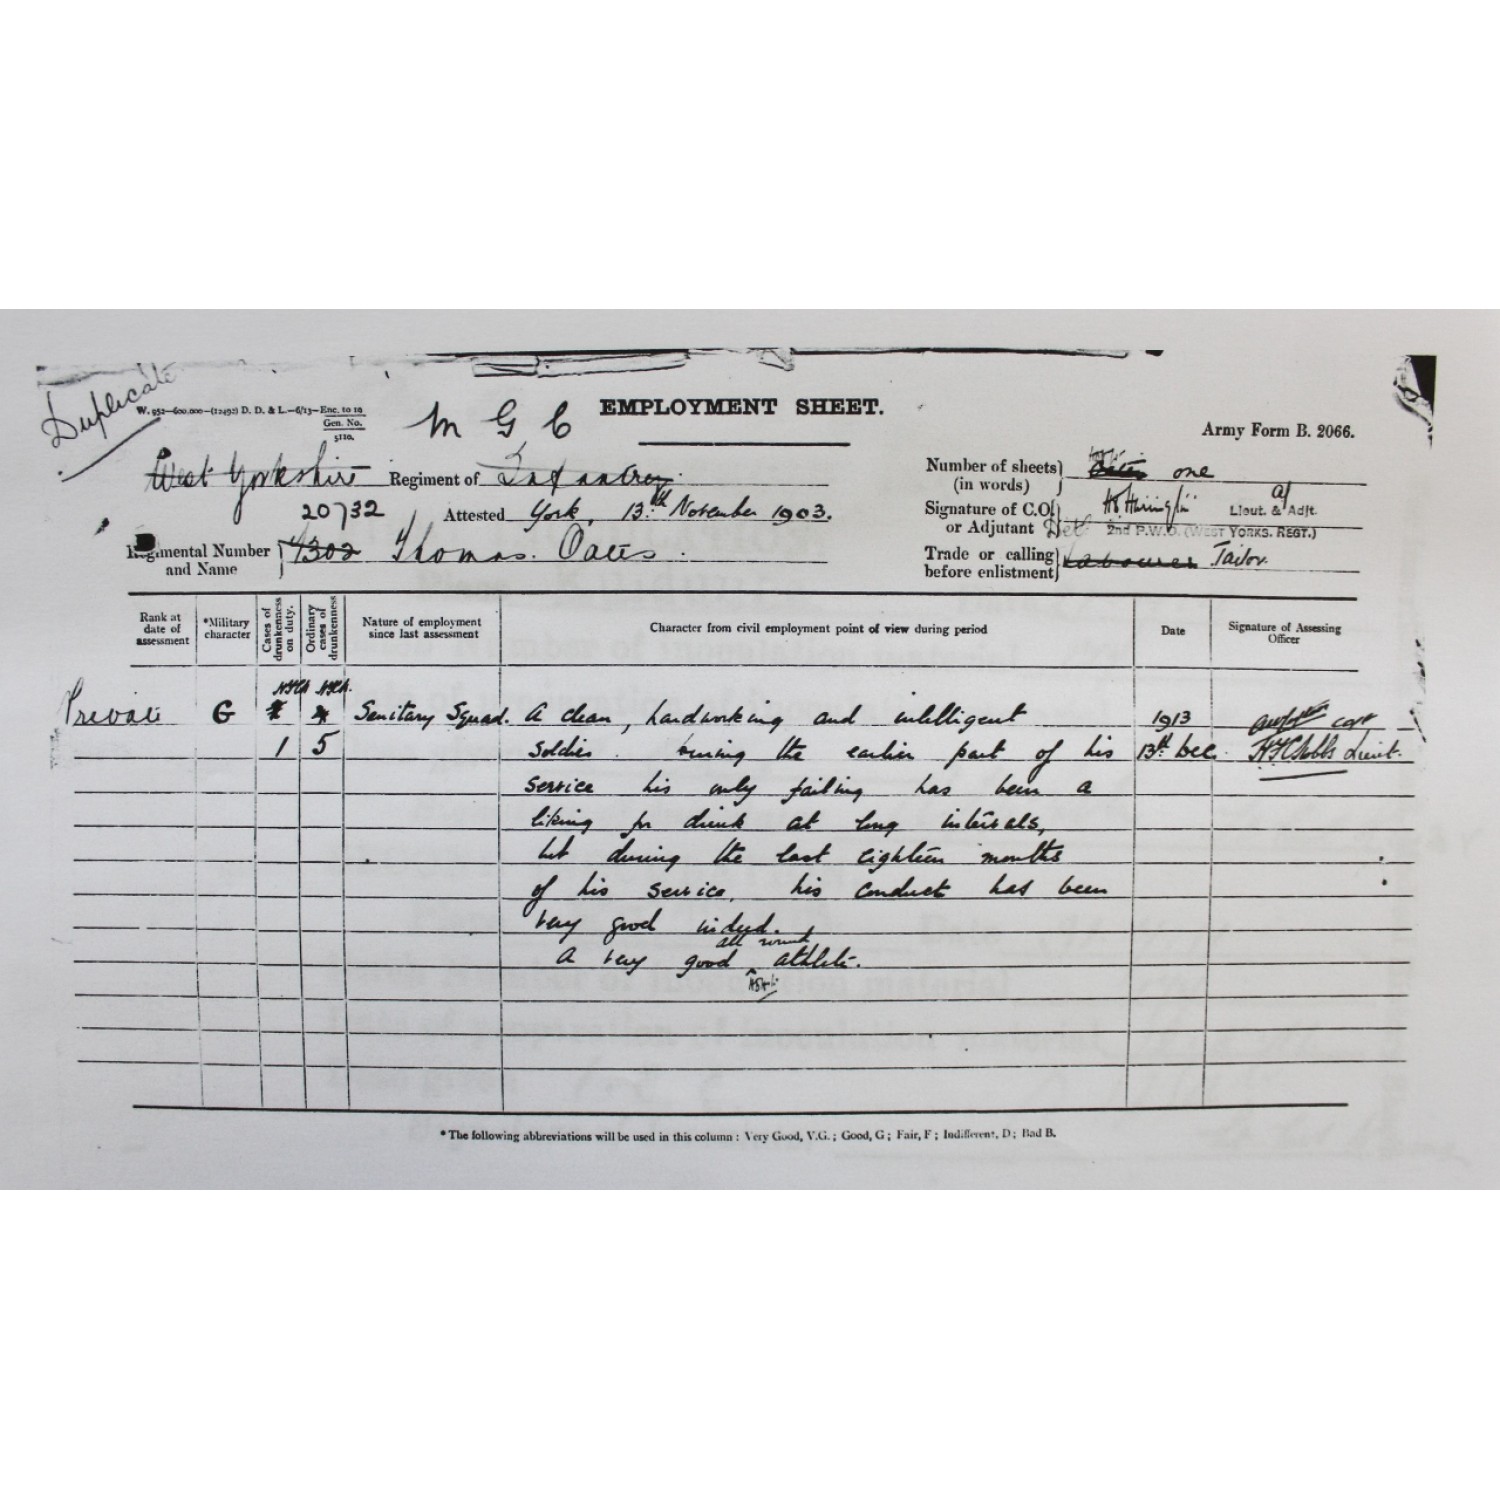 Duplicate
W. 952—600.000—(12492) D. D. & L.—6/13—Enc. to 10
Gen. No.
5110.
M G C
EMPLOYMENT SHEET.
Army Form B. 2066.
West Yorkshire Regiment of Infantry.
Number of sheets (in words) one
20732
Attested York, 13th November 1903.
Signature of C.O. or Adjutant
Lieut. & Adjt.
2nd P.W.O. (WEST YORKS. REGT.)
Regimental Number and Name 7302 Thomas. Oates.
Trade or calling before enlistment Labourer Tailor.
Rank at date of assessment
*Military character
Cases of drunkenness on duty.
Ordinary cases of drunkenness
Nature of employment since last assessment
Character from civil employment point of view during period
Date
Signature of Assessing Officer
Private G Sanitary Squad. A clean, hardworking and intelligent 1913 Capt
1 5 soldier. During the earlier part of his 13th Dec. Lieut.
service his only failing has been a
liking for drink at long intervals,
but during the last eighteen months
of his service, his conduct has been
very good indeed.
all round
A very good athlete.
* The following abbreviations will be used in this column : Very Good, V.G. ; Good, G ; Fair, F ; Indifferent, D ; Bad B.